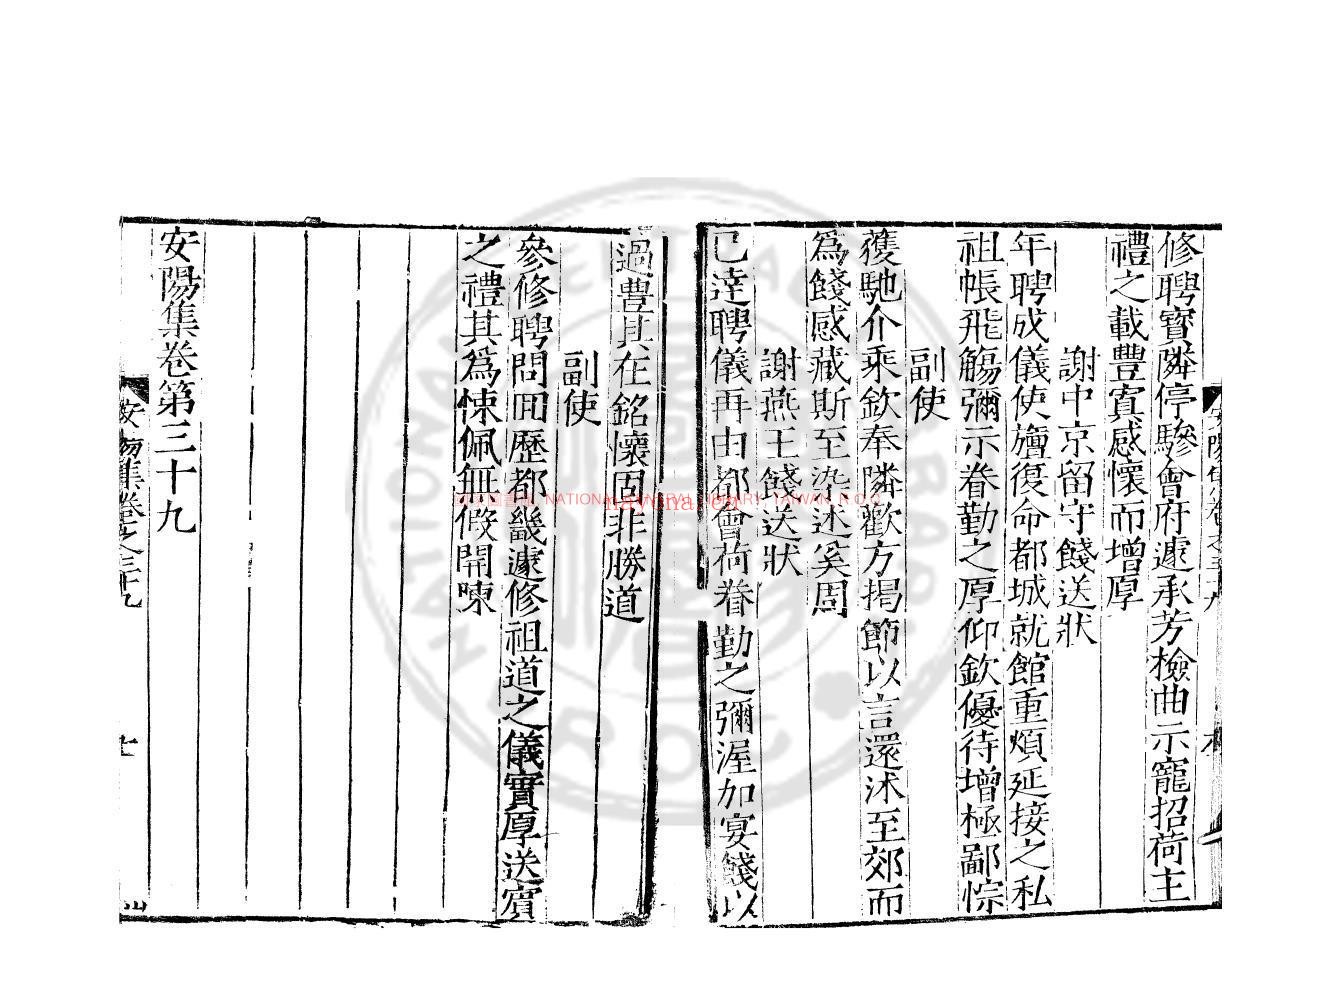 修聘寳隣停驂會府遽承芳檢曲示寵招荷主
禮之載豐寘感懷而增厚
謝中京留守餞送狀
年聘成儀使旜復命都城就館重煩延接之私
祖帳飛觴彌示眷勤之厚仰欽優待增極鄙悰
副使
獲馳介乘欽奉隣歡方揭節以言還沭至郊而
爲餞感藏斯至染述奚周
謝燕王餞送狀
已達聘儀再由都會荷眷勤之彌渥加宴餞以
過豊其在銘懷固非勝道
副使
叅修聘問囬歷都畿遽修祖道之儀實厚送賔
之禮其爲悚佩無假開陳
安陽集卷第三十九
安陽集卷之三十九